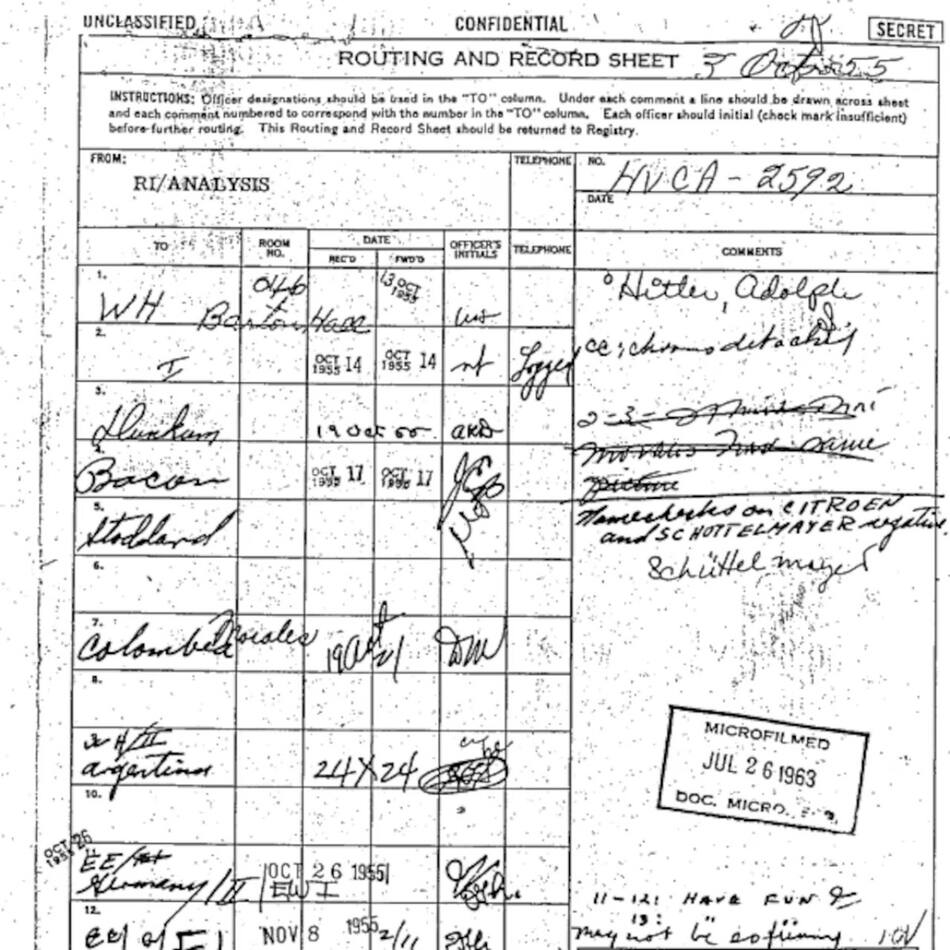 UNCLASSIFIED CONFIDENTIAL SECRET
ROUTING AND RECORD SHEET 3 Oct 55
INSTRUCTIONS: Officer designations should be used in the "TO" column. Under each comment a line should be drawn across sheet
and each comment numbered to correspond with the number in the "TO" column. Each officer should initial (check mark insufficient)
before further routing. This Routing and Record Sheet should be returned to Registry.
FROM:
RI/ANALYSIS
TELEPHONE
NO.
HVCA - 2592
DATE
TO
ROOM
NO.
DATE
REC'D
FWD'D
OFFICER'S
INITIALS
TELEPHONE
COMMENTS
1.
WH Barton Hall
046
13 OCT
1955
Hitler, Adolph
2.
I
OCT 14
1955
OCT 14
1955
Logged
cc:
3.
19 Oct 55
same
4.
Bacon
OCT 17
1955
OCT 17
1955
picture
5.
Stoddard
Namechecks on CITROEN
and SCHOTTELMAYER negative.
Schüttelmayer
6.
7.
Colombia
8.
Argentina
24 X 24
10.
MICROFILMED
JUL 26 1963
DOC. MICRO.
OCT 26
1955
11.
EE/
Germany/II/EW I
OCT 26 1955
12.
NOV 8 1955
2/11
11-12: HAVE FUN
13:
may not be